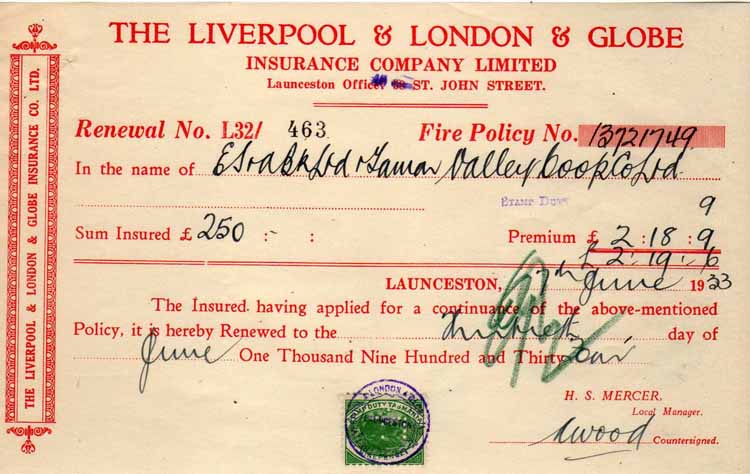 THE LIVERPOOL & LONDON & GLOBE INSURANCE CO. LTD.
THE LIVERPOOL & LONDON & GLOBE
INSURANCE COMPANY LIMITED
Launceston Office: ST. JOHN STREET.
Renewal No. L32/ 463 Fire Policy No. 13721749
In the name of ES&A Bk Ltd & Tamar Valley Coop Co Ltd
STAMP DUTY 9
Sum Insured £ 250 : - : Premium £ 2 : 18 : 9
£ 2 : 19 : 6
LAUNCESTON, 7th June 1933
The Insured having applied for a continuance of the above-mentioned
Policy, it is hereby Renewed to the Thirtieth day of
June One Thousand Nine Hundred and Thirty four
H. S. MERCER,
Local Manager.
Wood Countersigned.
STAMP DUTY TASMANIA
LONDON &